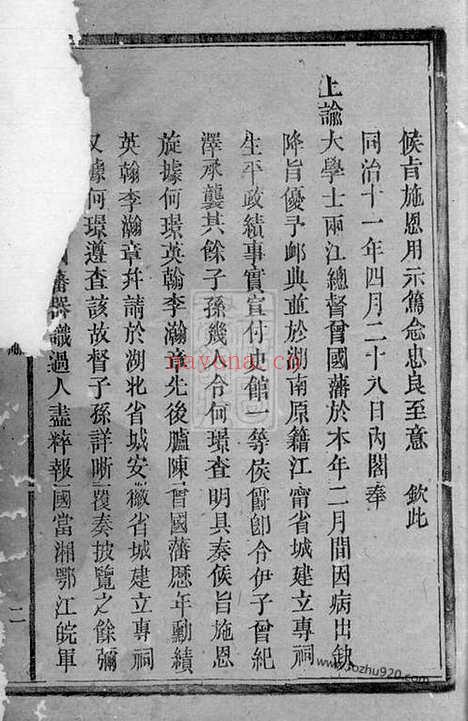 候旨施恩用示篤念忠良至意 欽此
同治十一年四月二十八日內閣奉
上諭大學士兩江總督曾國藩於本年二月間因病出缺
降旨優予卹典並於湖南原籍江甯省城建立專祠
生平政績事實宣付史館一等侯爵卽令伊子曾紀
澤承襲其餘子孫幾人令何璟查明具奏候旨施恩
旋據何璟英翰李瀚章先後臚陳曾國藩歷年勳績
英翰李瀚章幷請於湖北省城安徽省城建立專祠
又據何璟遵查該故督子孫詳晰覆奏披覽之餘彌
國藩器識過人盡粹報國當湘鄂江皖軍
二
nayona.cn
www.sozhu920.com